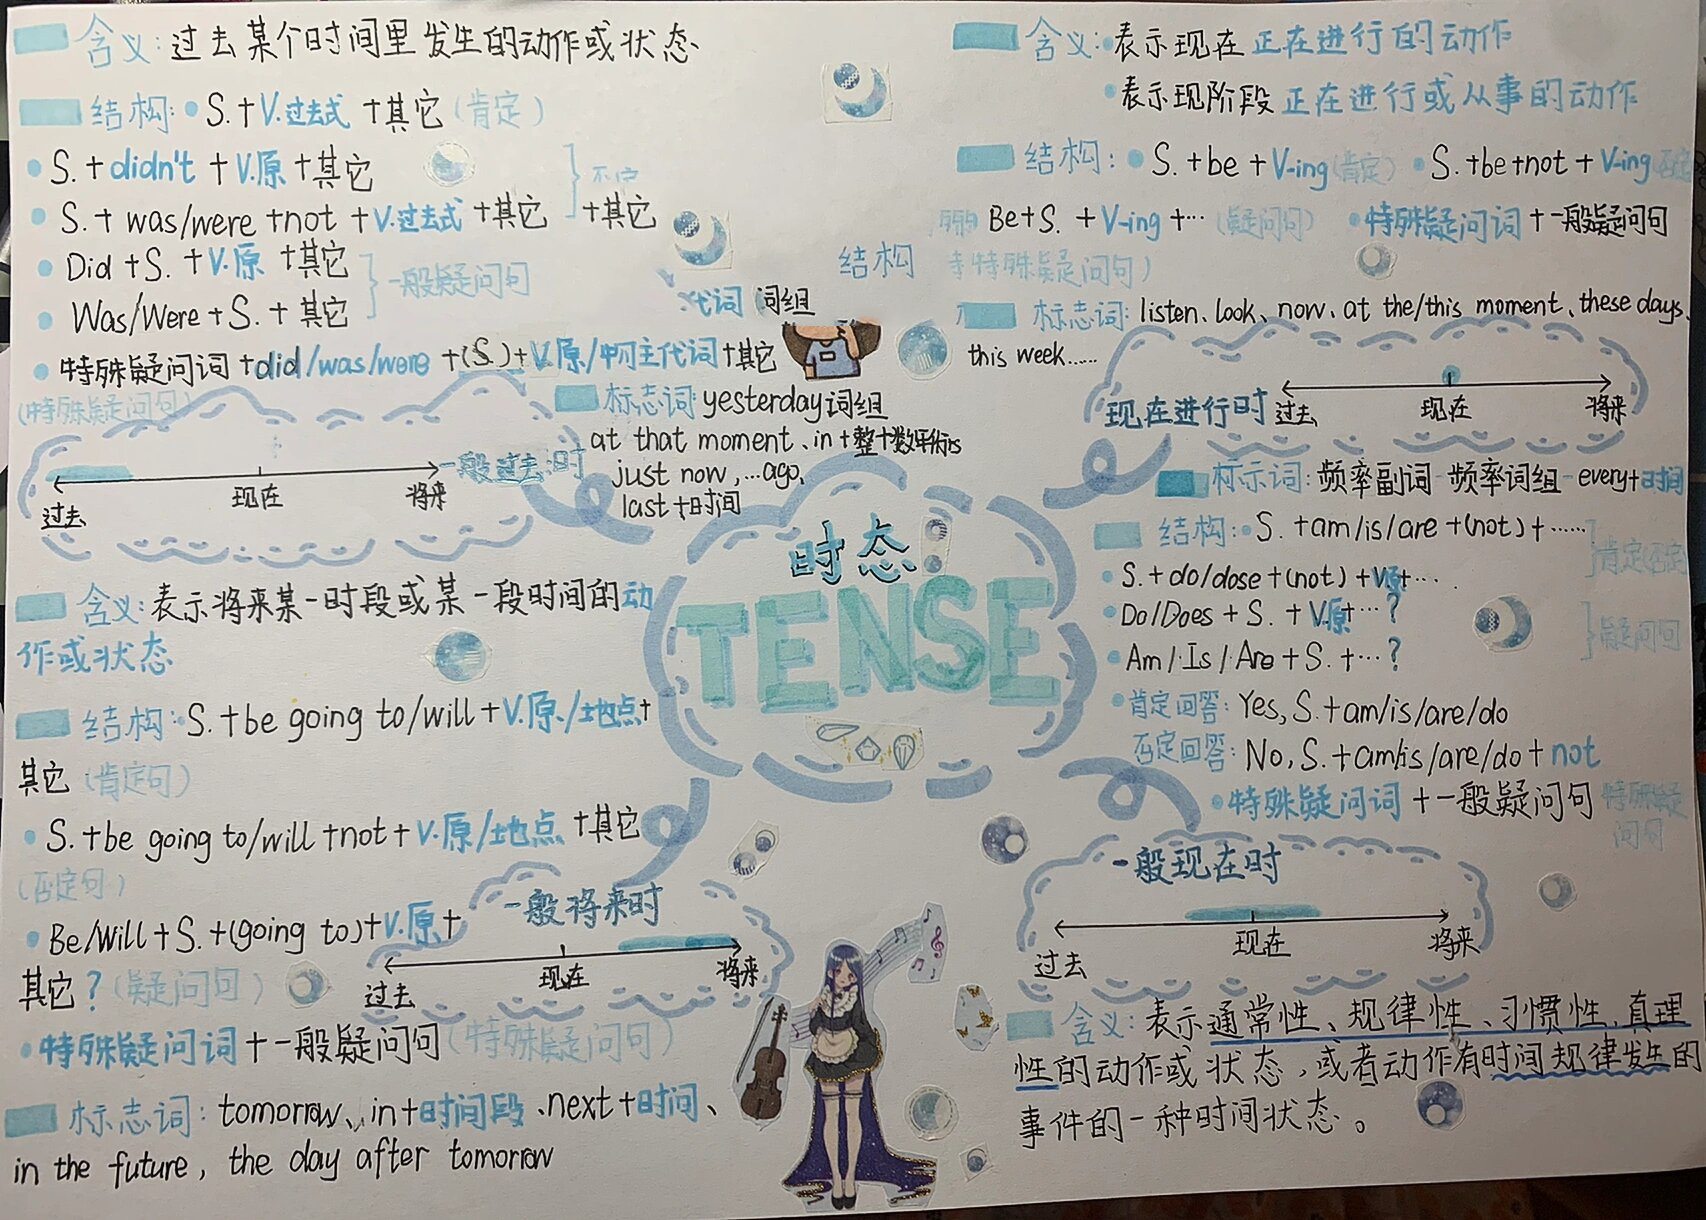 含义: 过去某个时间里发生的动作或状态
结构: S. + V.过去式 + 其它 (肯定)
S. + didn't + V.原 + 其它
S. + was/were + not + V.过去式 + 其它
+ 其它
Did + S. + V.原 + 其它
Was/Were + S. + 其它
一般疑问句
特殊疑问词 + did/was/were + (S.) + V.原/物主代词 + 其它
(特殊疑问句)
结构
代词 词组
标志词: yesterday词组
at that moment、in + 整十数年
just now, …ago,
last + 时间
一般过去时
过去 现在 将来
含义: 表示将来某一时段或某一段时间的动
作或状态
结构: S. + be going to/will + V.原./地点 +
其它 (肯定句)
S. + be going to/will + not + V.原/地点 + 其它
(否定句)
Be/Will + S. + (going to) + V.原 +
其它? (疑问句)
特殊疑问词 + 一般疑问句 (特殊疑问句)
标志词: tomorrow、in + 时间段、next + 时间、
in the future, the day after tomorrow
一般将来时
过去 现在 将来
时态
TENSE
含义: 表示现在正在进行的动作
表示现阶段正在进行或从事的动作
结构: S. + be + V-ing (肯定) S. + be + not + V-ing 否定
Be + S. + V-ing + … (疑问句) 特殊疑问词 + 一般疑问句
特殊疑问句)
标志词: listen、look、now、at the/this moment、these days、
this week……
现在进行时
过去 现在 将来
标示词: 频率副词 频率词组 every + 时间
结构: S. + am/is/are + (not) + ……
S. + do/dose + (not) + V原 + …
肯定否定
Do/Does + S. + V.原 + … ?
Am/Is/Are + S. + … ?
疑问句
肯定回答: Yes, S. + am/is/are/do
否定回答: No, S. + am/is/are/do + not
特殊疑问词 + 一般疑问句 特殊疑
问句
一般现在时
过去 现在 将来
含义: 表示通常性、规律性、习惯性、真理
性的动作或状态,或者动作有时间规律发生的
事件的一种时间状态。